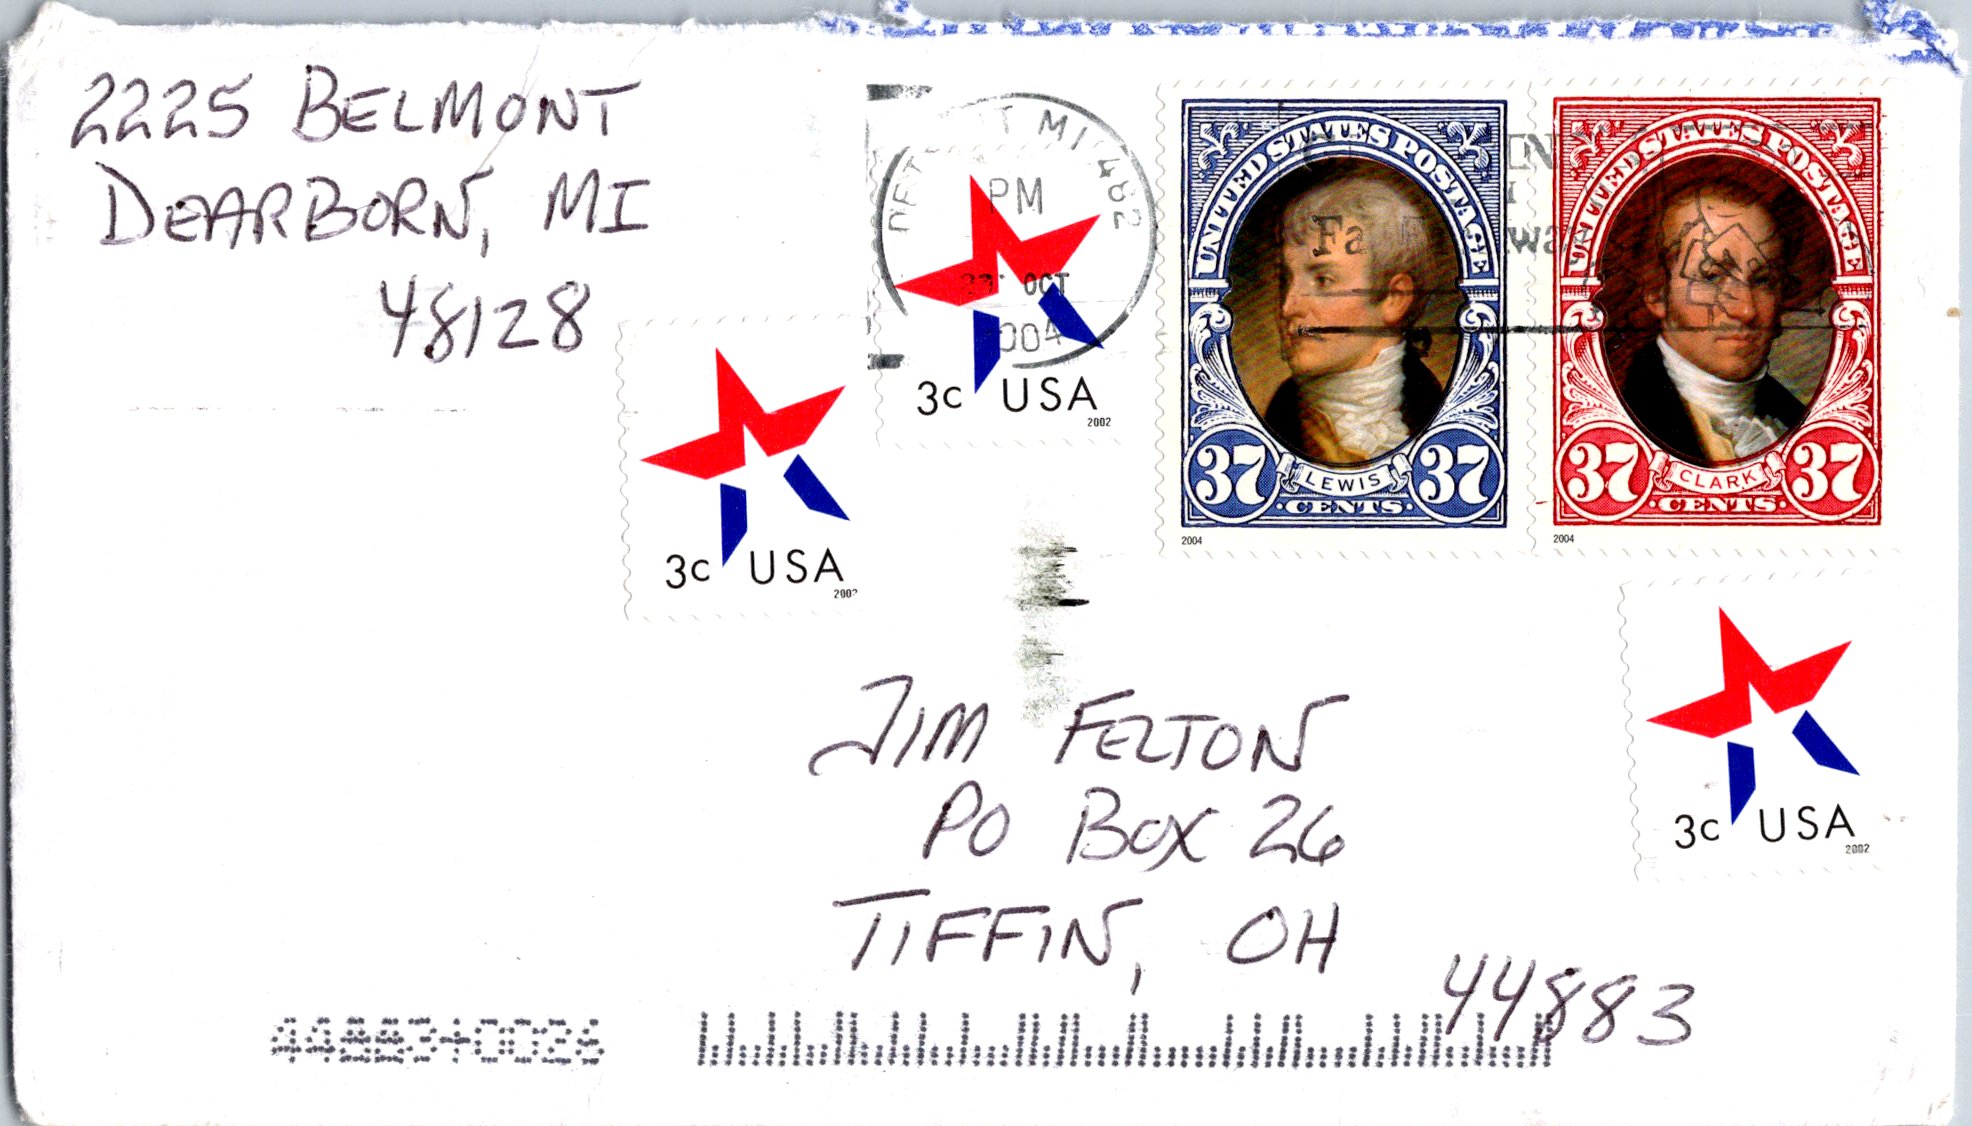 2225 BELMONT
DEARBORN, MI
48128
DETROIT MI 482
PM
OCT
2004
3c USA
2002
3c USA
2002
UNITED STATES POSTAGE
37 LEWIS 37
CENTS
2004
UNITED STATES POSTAGE
37 CLARK 37
CENTS
2004
3c USA
2002
JIM FELTON
PO BOX 26
TIFFIN, OH
44883
44883+0026